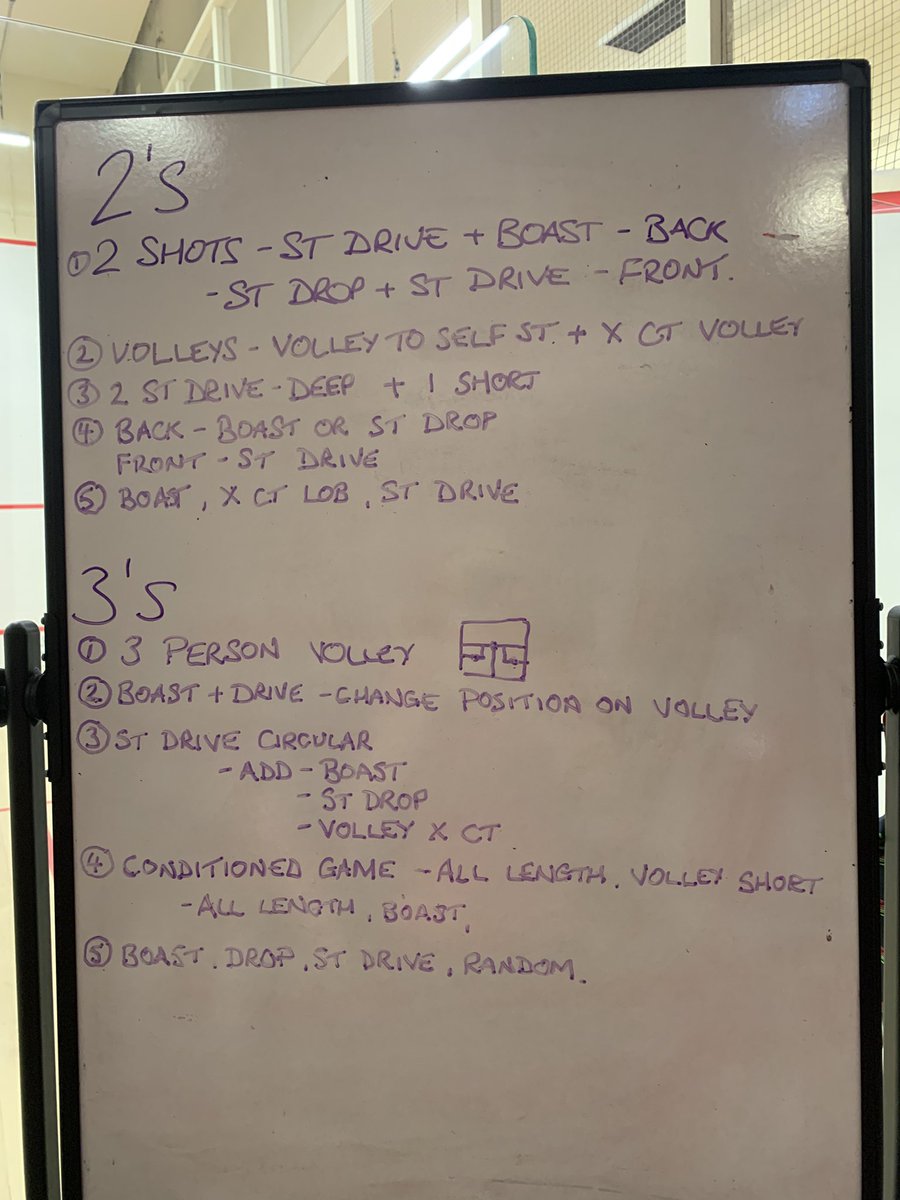 2's
① 2 SHOTS - ST DRIVE + BOAST - BACK
- ST DROP + ST DRIVE - FRONT.
② VOLLEYS - VOLLEY TO SELF ST. + X CT VOLLEY
③ 2 ST DRIVE - DEEP + 1 SHORT
④ BACK - BOAST OR ST DROP
FRONT - ST DRIVE
⑤ BOAST, X CT LOB, ST DRIVE
3's
① 3 PERSON VOLLEY
② BOAST + DRIVE - CHANGE POSITION ON VOLLEY
③ ST DRIVE CIRCULAR
- ADD - BOAST
- ST DROP
- VOLLEY X CT
④ CONDITIONED GAME - ALL LENGTH, VOLLEY SHORT
- ALL LENGTH, BOAST,
⑤ BOAST, DROP, ST DRIVE, RANDOM.